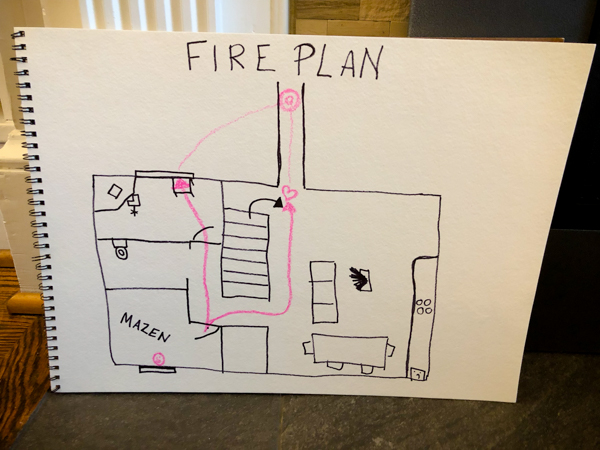 FIRE PLAN
MAZEN